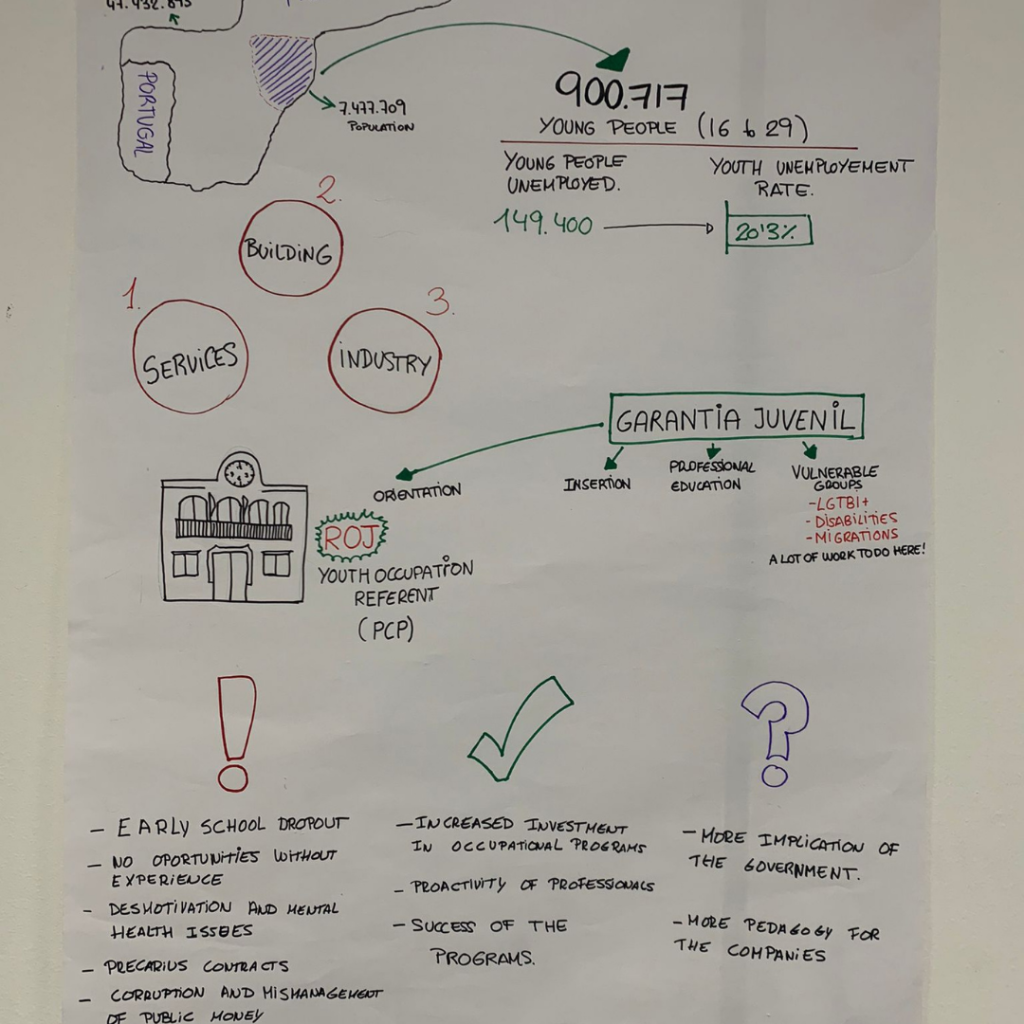 47.432.893
PORTUGAL
7.477.709
POPULATION
900.717
YOUNG PEOPLE (16 to 29)
YOUNG PEOPLE
UNEMPLOYED.
149.400
YOUTH UNEMPLOYEMENT
RATE.
20'3%
1.
SERVICES
2.
BUILDING
3.
INDUSTRY
GARANTIA JUVENIL
ORIENTATION
INSERTION
PROFESSIONAL
EDUCATION
VULNERABLE
GROUPS
-LGTBI+
- DISABILITIES
- MIGRATIONS
A LOT OF WORK TO DO HERE!
ROJ
YOUTH OCCUPATION
REFERENT
(PCP)
!
- EARLY SCHOOL DROPOUT
- NO OPORTUNITIES WITHOUT
EXPERIENCE
- DESMOTIVATION AND MENTAL
HEALTH ISSEES
- PRECARIUS CONTRACTS
- CORRUPTION AND MISMANAGEMENT
OF PUBLIC MONEY
- INCREASED INVESTMENT
IN OCCUPATIONAL PROGRAMS
- PROACTIVITY OF PROFESSIONALS
- SUCCESS OF THE
PROGRAMS.
?
- MORE IMPLICATION OF
THE GOVERNMENT.
- MORE PEDAGOGY FOR
THE COMPANIES